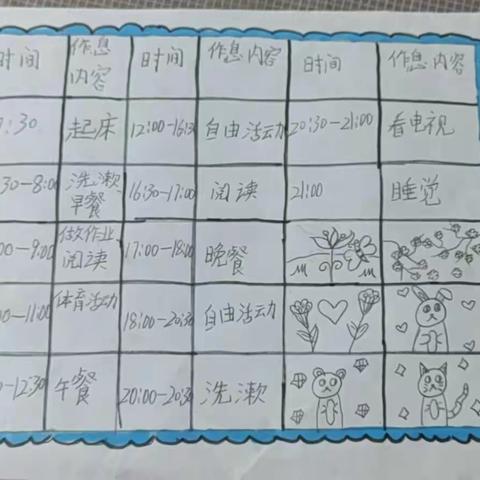 时间 作息内容 时间 作息内容 时间 作息内容
7:30 起床 12:00-16:30 自由活动 20:30-21:00 看电视
30-8:00 洗漱 早餐 16:30-17:00 阅读 21:00 睡觉
00-9:00 做作业 阅读 17:00-18:00 晚餐
00-11:00 体育活动 18:00-20:30 自由活动
-12:30 午餐 20:00-20:30 洗漱